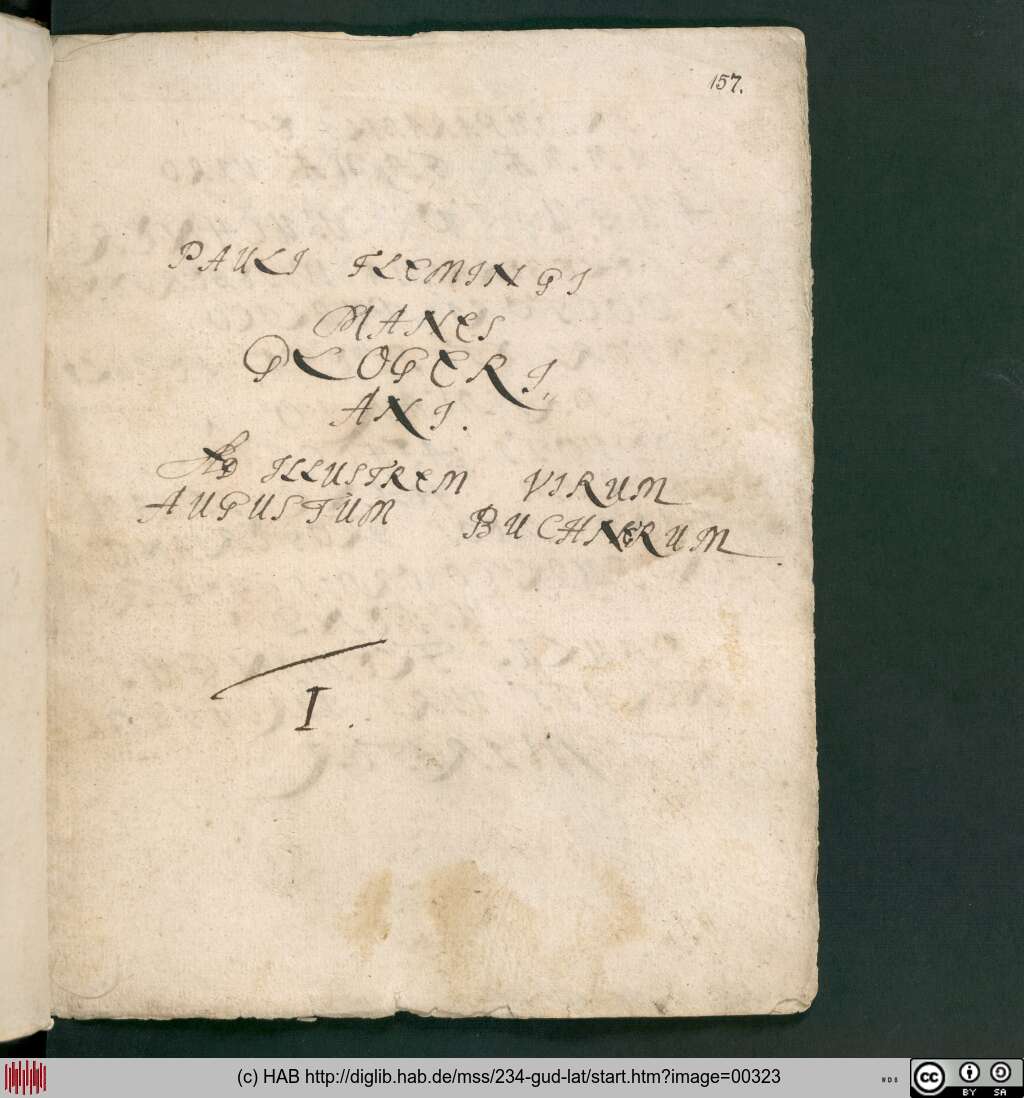 157.
PAULI FLEMINGI
MANES
GLOGERI,
ANI.
AD ILLUSTREM VIRUM
AUGUSTUM BUCHNERUM.
I.
(c) HAB http://diglib.hab.de/mss/234-gud-lat/start.htm?image=00323
WDB
cc BY SA